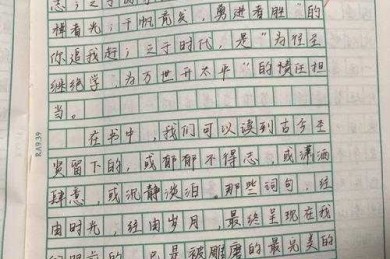 志；之于
择者先；千帆竞发，勇进者胜”的
你追我赶；之于时代，是“为往圣
继绝学，为万世开太平”的责任担
当。
在书中，我们可以读到古今圣
贤留下的，或郁郁不得志，或潇洒
肆意，或沉静淡泊。那些词句，经
由时光，经由岁月，最终呈现在我
的，只是被雕磨的最完美的
RA9.39